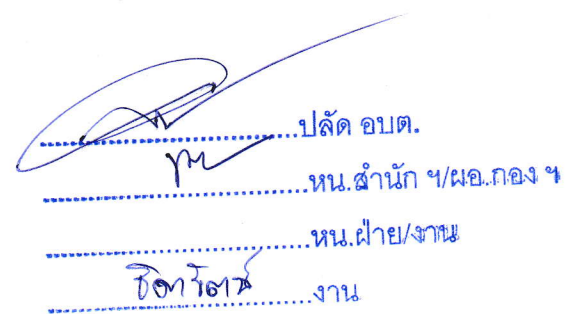 ปลัด อบต.
หน.สำนัก ฯ/ผอ.กอง ฯ
หน.ฝ่าย/งาน
งาน